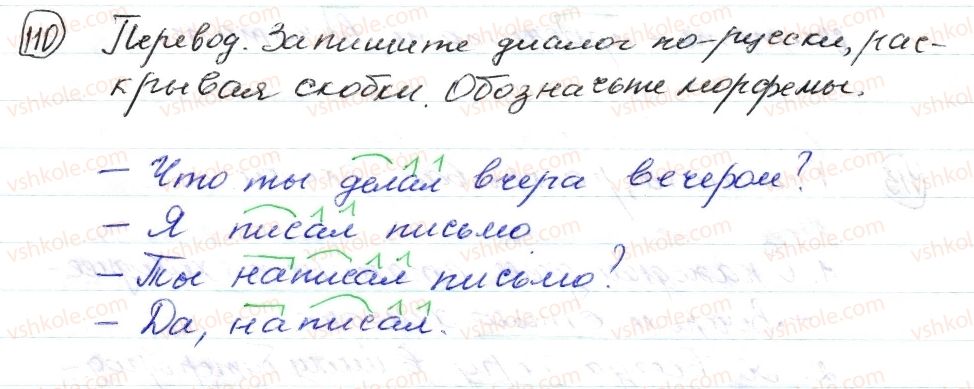 110 Перевод. Запишите диалог по-русски, рас-
крывая скобки. Обозначьте морфемы.
– Что ты делал вчера вечером?
– Я писал письмо
– Ты написал письмо?
– Да, написал.